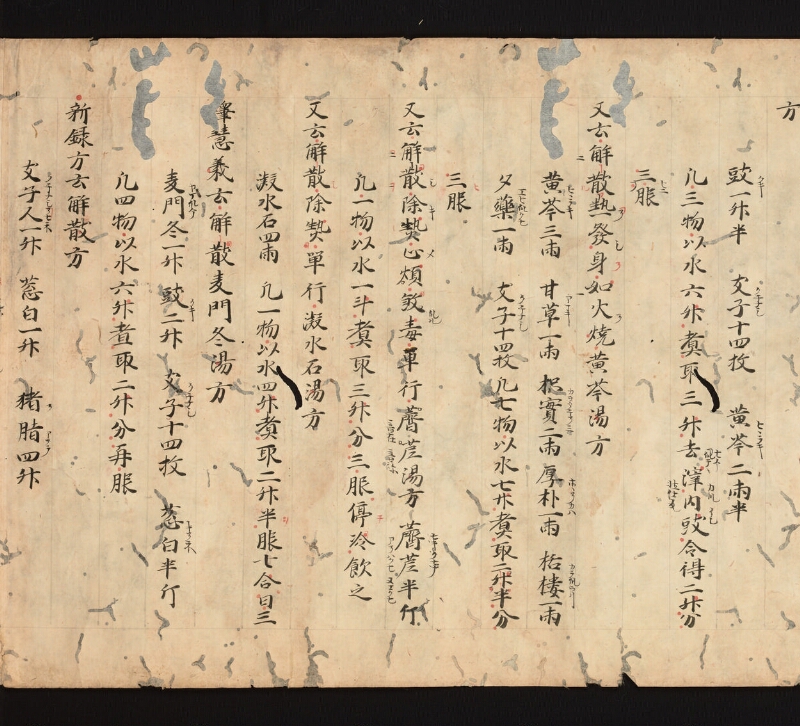 方
豉一升半 支子十四枚 黄芩二兩半
凡三物以水六升煮取三升去滓内豉令得二升分
三服
又云解散熱發身如火燒黄芩湯方
黄芩三兩 甘草一兩 枳實二兩 厚朴一兩 栝樓一兩
夕藥一兩 支子十四枚 凡七物以水七升煮取二升半分
三服
又云解散除熱止煩毒單行薺苨湯方 薺苨半斤
凡一物以水一斗煮取三升分三服停冷飲之
又云解散除熱單行凝水石湯方
凝水石四兩 凡一物以水四升煮取二升半服七合日三
慧義云解散麦門冬湯方
麦門冬一升 豉二升 支子十四枚 葱白半斤
凡四物以水六升煮取二升分再服
新録方云解散方
支子人一升 葱白一升 猪脂四升